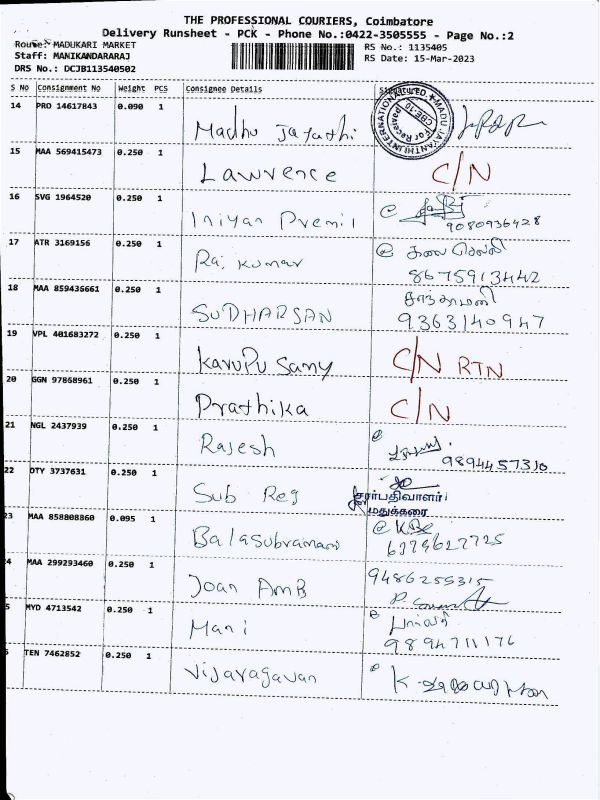 THE PROFESSIONAL COURIERS, Coimbatore
Delivery Runsheet - PCK - Phone No.:0422-3505555 - Page No.:2
Route: MADUKARI MARKET
RS No.: 1135405
Staff: MANIKANDARARAJ
RS Date: 15-Mar-2023
DRS No.: DCJB113540502
S No Consignment No Weight PCS Consignee Details Signature
14 PRO 14617843 0.090 1 Madhu Jayathi
MADU JAYANTHI INTERNATIONAL For Received CBE-10
15 MAA 569415473 0.250 1 Lawrence C/N
16 SVG 1964520 0.250 1 Iniyan Premil @
9080936428
17 ATR 3169156 0.250 1 Raj kumar @ கலை செல்வி
8675913442
18 MAA 859436661 0.250 1 SUDHARSAN சாந்தாமணி
9363140947
19 VPL 401683272 0.250 1 Karupu Samy C/N RTN
20 GGN 97868961 0.250 1 Prathika C/N
21 NGL 2437939 0.250 1 Rajesh @
9894457310
22 OTY 3737631 0.250 1 Sub Reg சார்பதிவாளர்
மதுக்கரை
23 MAA 858808860 0.095 1 Balasubramani @
6379627725
24 MAA 299293460 0.250 1 Joan AMB 9486255315
5 MYD 4713542 0.250 1 Mani @
9894711176
TEN 7462852 0.250 1 Vijayagavan @ K